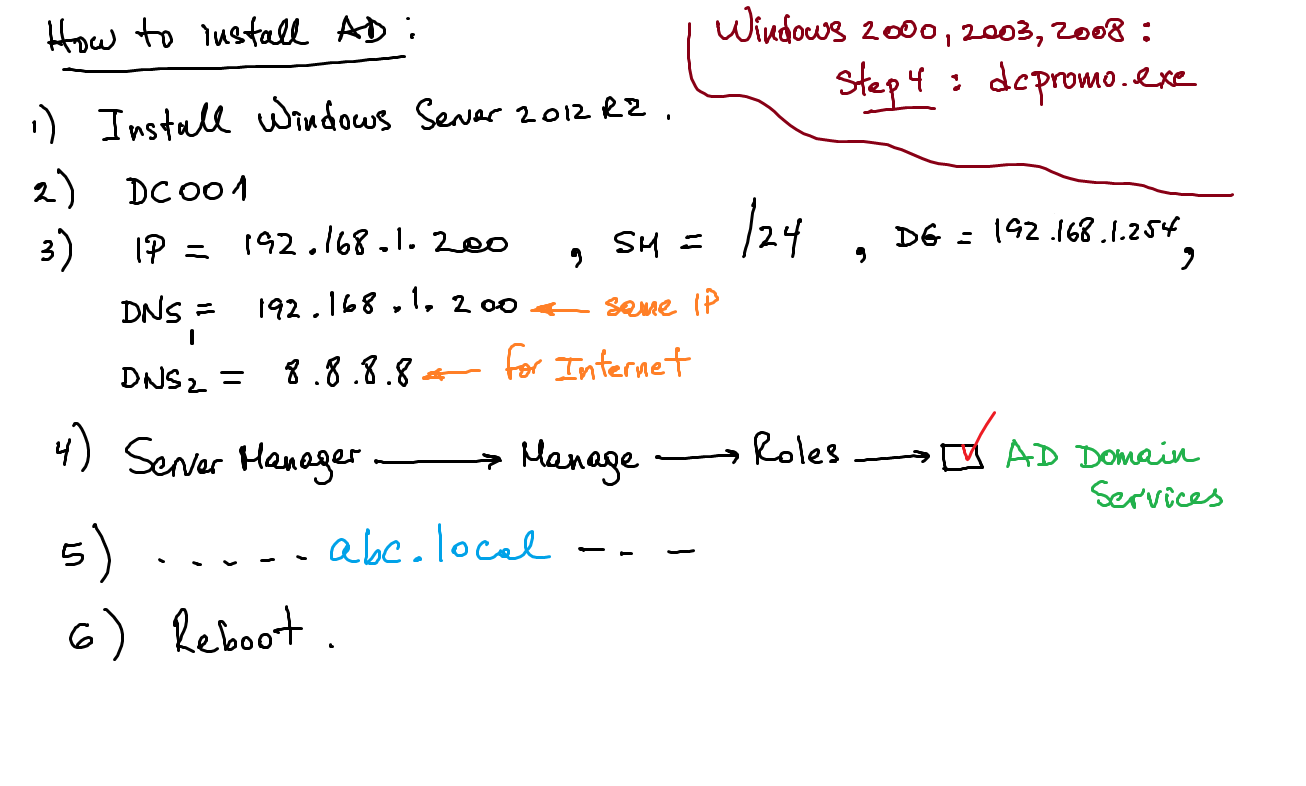 How to install AD :
Windows 2000, 2003, 2008 :
Step 4 : dcpromo.exe
1) Install Windows Server 2012 R2 .
2) DC001
3) IP = 192.168.1.200 , SM = /24 , DG = 192.168.1.254 ,
DNS1 = 192.168.1.200 ← same IP
DNS2 = 8.8.8.8 ← for Internet
4) Server Manager → Manage → Roles → ☑ AD Domain
Services
5) ..... abc.local ---
6) Reboot .